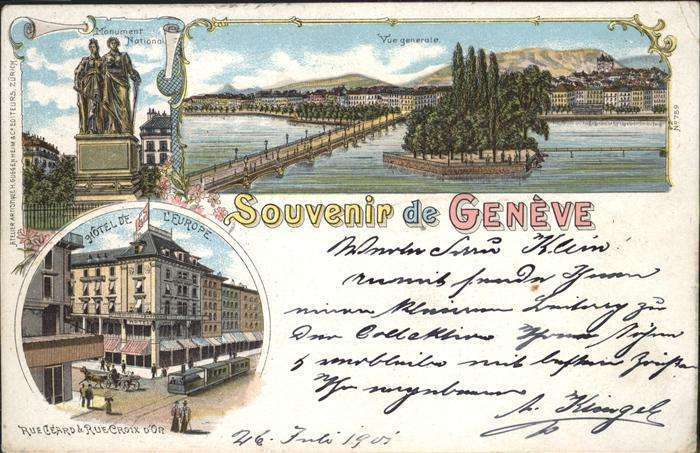 Monument
National
Vue générale.
ATELIER ARTISTIQUE H. GUGGENHEIM & Cº EDITEURS, ZÜRICH.
Nº 759
Souvenir de GENÈVE
HÔTEL DE L'EUROPE
RUE CÉARD & RUE CROIX D'OR
Werter Herr Klein
sende Ihnen
einen kleinen Beitrag zu
Der Collektion Ihres Sohnes
mit besten Grüßen
Ihr ergebener
26. Juli 1901